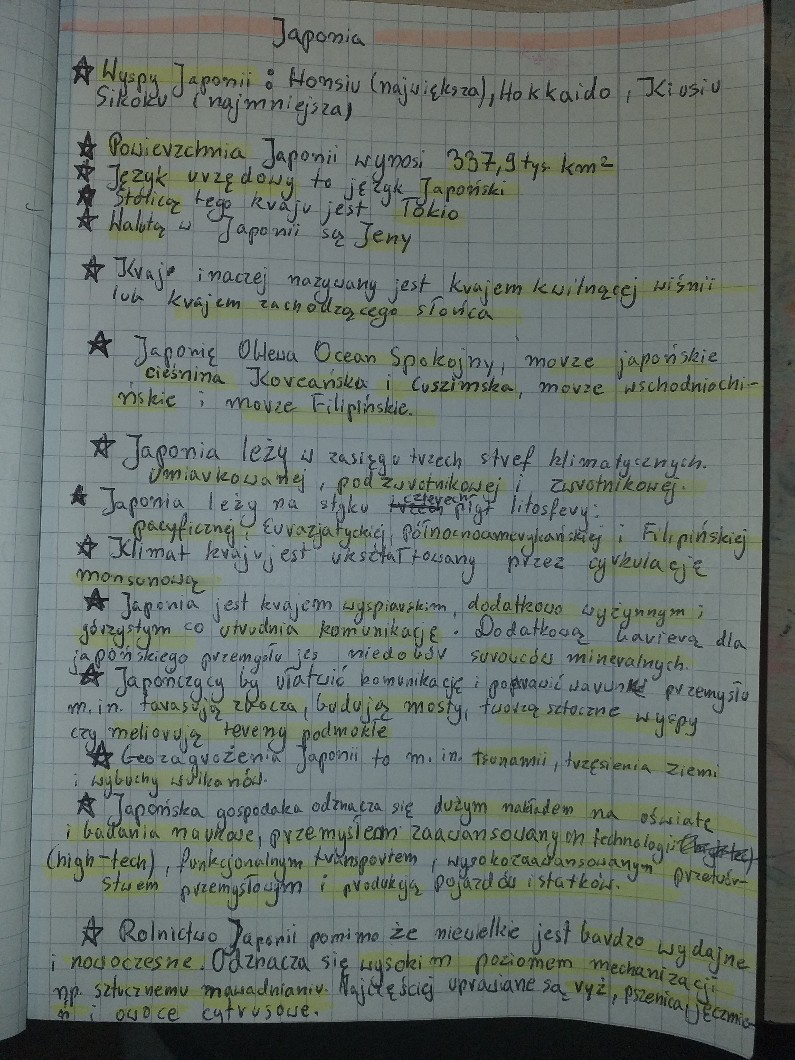 Japonia
Wyspy Japonii : Honsiu (największa), Hokkaido, Kiusiu
Sikoku (najmniejsza)
Powierzchnia Japonii wynosi 337,9 tyś km²
Język urzędowy to język Japoński
Stolicą tego kraju jest Tokio
Walutą w Japonii są Jeny
Kraj inaczej nazywany jest krajem kwitnącej wiśnii
lub krajem zachodzącego słońca
Japonię Oblewa Ocean Spokojny, morze japońskie
cieśnina Koreańska i Cuszimska, morze wschodniochi-
ńskie i morze Filipińskie.
Japonia leży w zasięgu trzech stref klimatycznych.
Umiarkowanej, podzwrotnikowej i zwrotnikowej.
Japonia leży na styku czterech płyt litosfery:
pacyficznej, Eurazjatyckiej, północnoamerykańskiej i Filipińskiej
Klimat kraju jest ukształtowany przez cyrkulację
monsunową
Japonia jest krajem wyspiarskim, dodatkowo wyżynnym i
górzystym co utrudnia komunikację. Dodatkową barierą dla
japońskiego przemysłu jes niedobór surowców mineralnych.
Japończycy by ułatwić komunikację i poprawić warunk przemysłu
m.in. tarasują zbocza, budują mosty, tworzą sztuczne wyspy
czy meliorują tereny podmokłe
Geozagrożenia Japonii to m.in. Tsunamii, trzęsienia ziemi
i wybuchy wulkanów.
Japońska gospodaka odznacza się dużym nakładem na oświatę
i badania naukowe, przemysłem zaawansowanych technologii
(high-tech), funkcjonalnym transportem, wysokozaawansowanym przetwór-
stwem przemysłowym i produkcją pojazdów i statków.
Rolnictwo Japonii pomimo że niewielkie jest bardzo wydajne
i nowoczesne. Odznacza się wysokim poziomem mechanizacji
np. sztucznemu nawadnianiu. Najczęściej uprawiane są ryż, pszenica, jęczmie
ń i owoce cytrusowe.